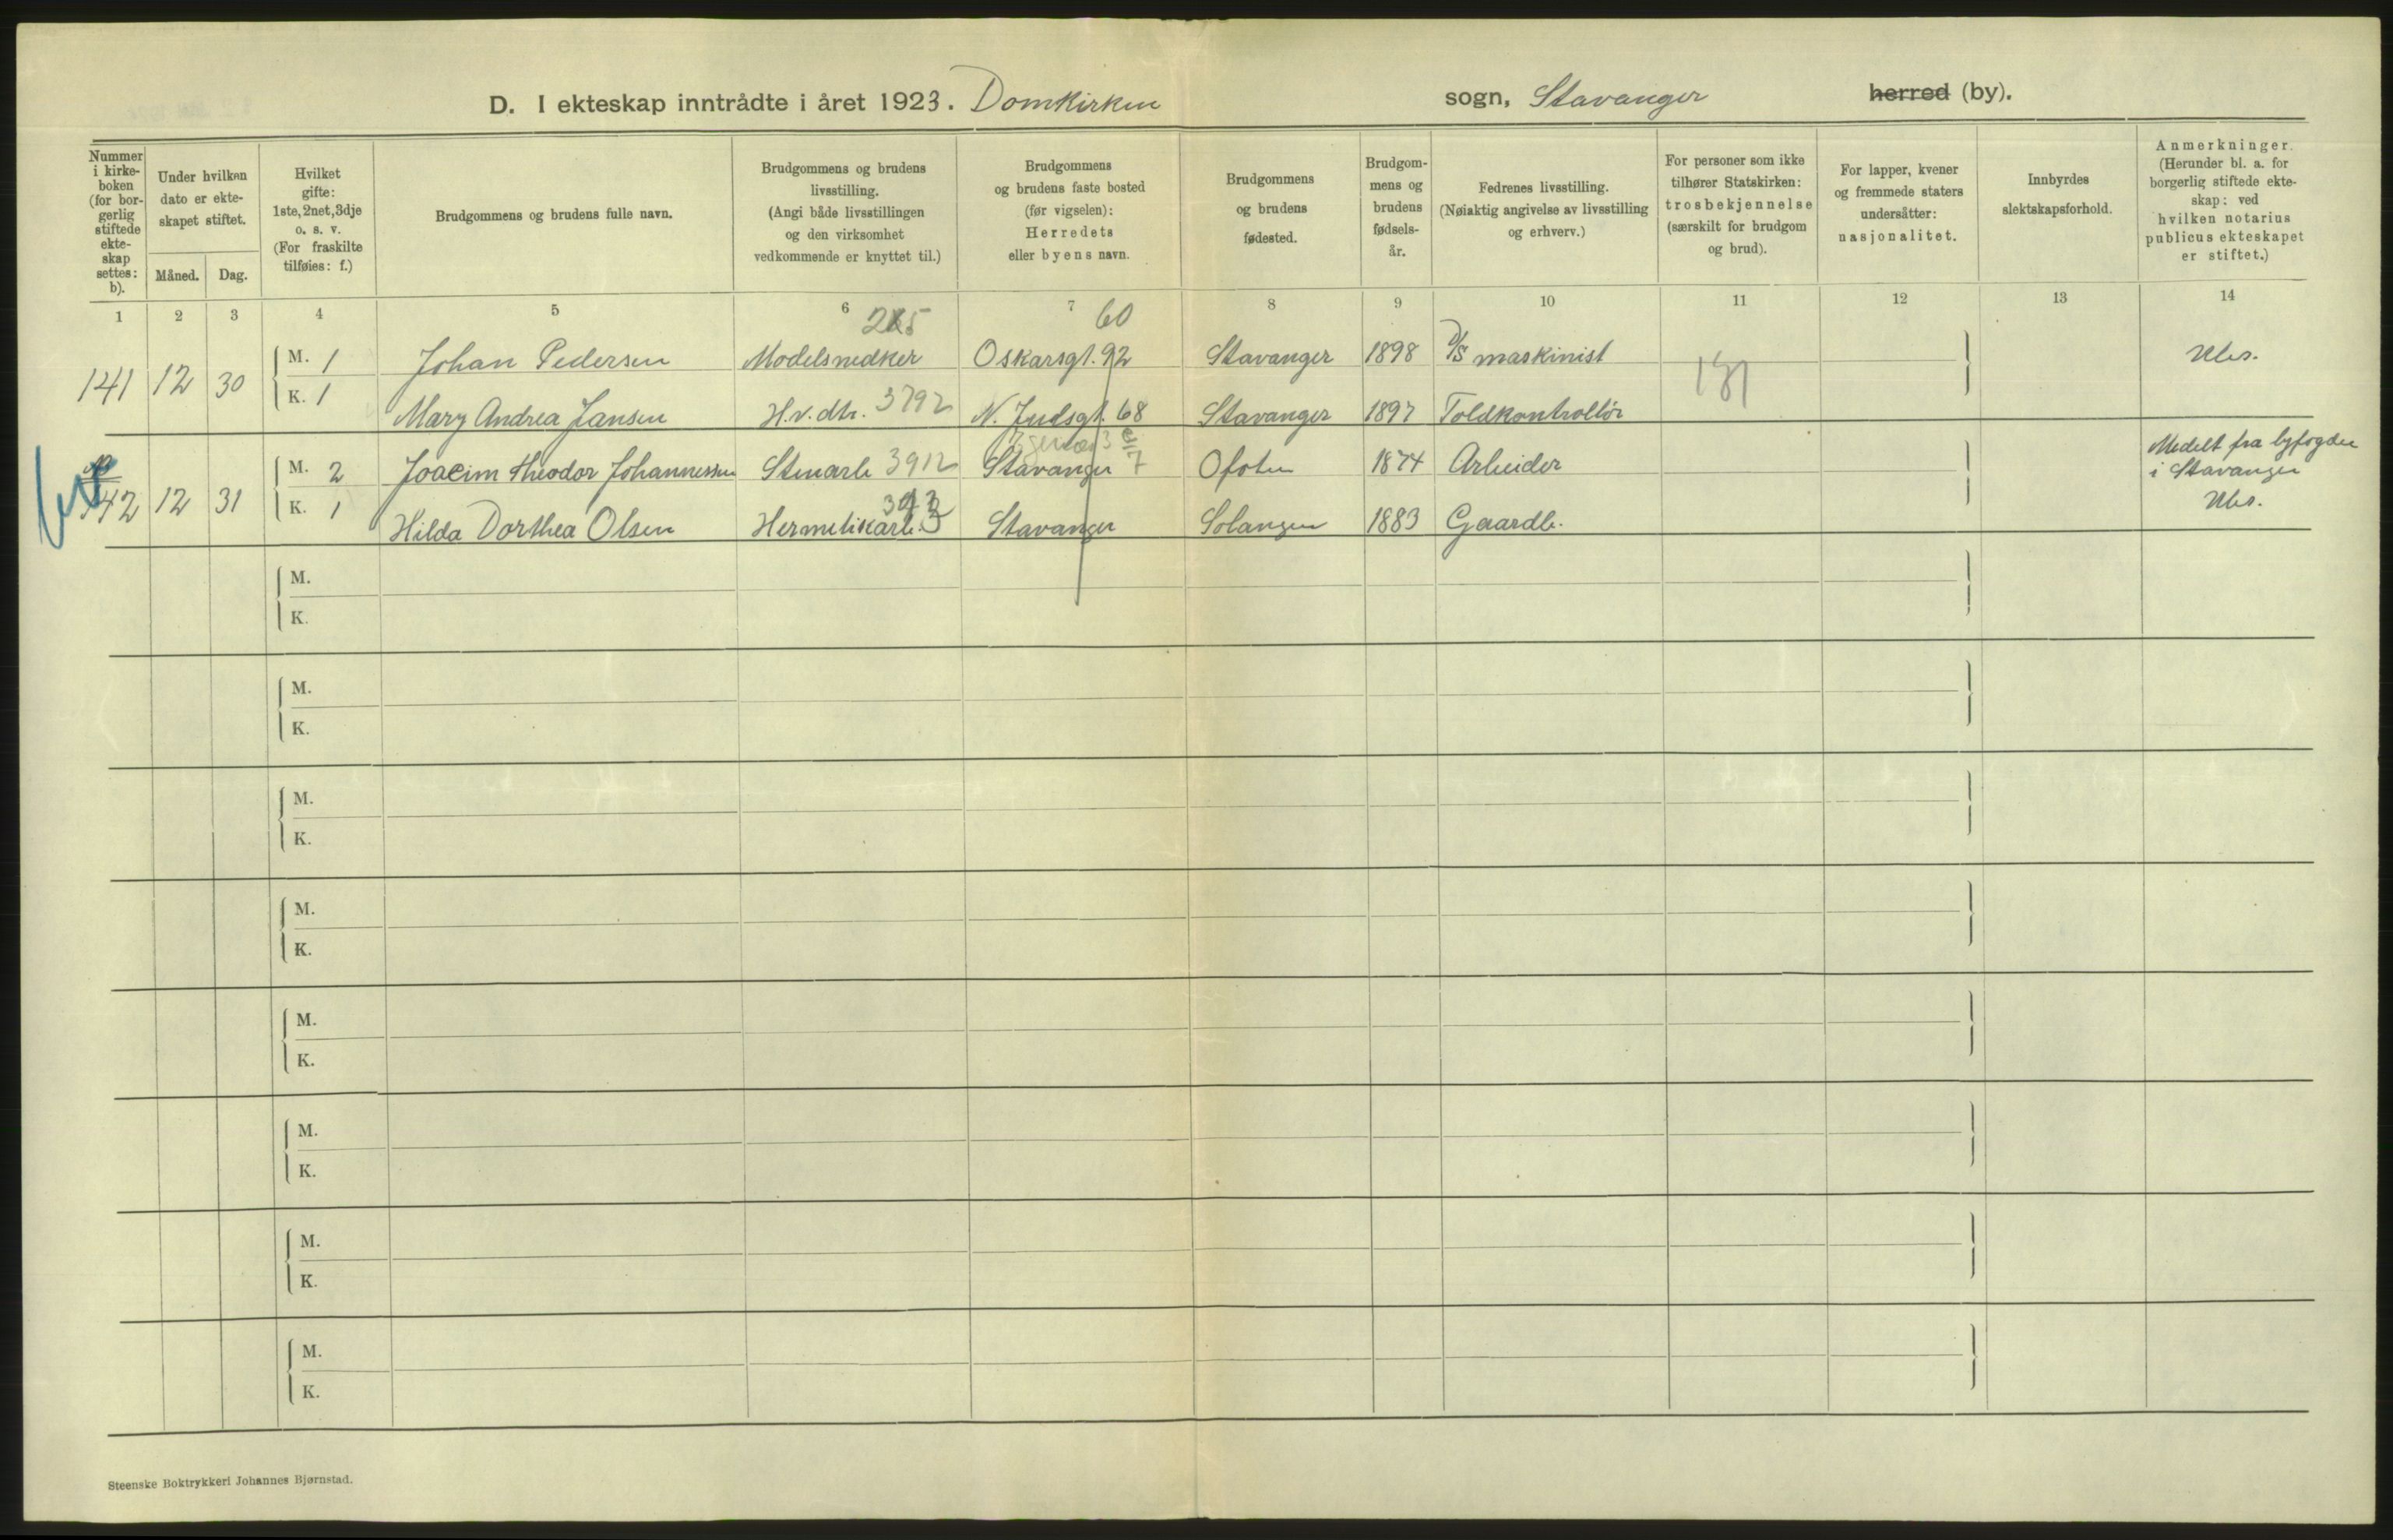 D. I ekteskap inntrådte i året 1923. Domkirken sogn, Stavanger herred (by).
Nummer i kirke-boken (for bor-gerlig stiftede ekte-skap settes: b).
Under hvilken dato er ekte-skapet stiftet.
Måned. Dag.
Hvilket gifte: 1ste, 2net, 3dje o. s. v. (For fraskilte tilføies: f.)
Brudgommens og brudens fulle navn.
Brudgommens og brudens livsstilling. (Angi både livsstillingen og den virksomhet vedkommende er knyttet til.)
Brudgommens og brudens faste bosted (før vigselen): Herredets eller byens navn.
Brudgommens og brudens fødested.
Brudgom-mens og brudens fødsels-år.
Fedrenes livsstilling. (Nøiaktig angivelse av livsstilling og erhverv.)
For personer som ikke tilhører Statskirken: trosbekjennelse (særskilt for brudgom og brud).
For lapper, kvener og fremmede staters undersåtter: nasjonalitet.
Innbyrdes slektskapsforhold.
Anmerkninger. (Herunder bl. a. for borgerlig stiftede ekte-skap: ved hvilken notarius publicus ekteskapet er stiftet.)
1 2 3 4 5 6 7 8 9 10 11 12 13 14
265 60
141 12 30 M. 1 Johan Pedersen Modelsnedker Oskarsgt. 92 Stavanger 1898 D/S maskinist
K. 1 Mary Andrea Jansen H.v. dtr. 3792 N. Judsgt. 68 Stavanger 1897 Toldkontrollør
131
142 12 31 M. 2 Joacim Theodor Johannessen Stuarb 3912 Stavanger 7 Ofoten 1874 Arbeider Medelt fra byfogden i Stavanger
K. 1 Hilda Dorthea Olsen Hermetikarb. Stavanger Solangen 1883 Gaardb.
M.
K.
M.
K.
M.
K.
M.
K.
M.
K.
M.
K.
M.
K.
M.
K.
Steenske Boktrykkeri Johannes Bjørnstad.